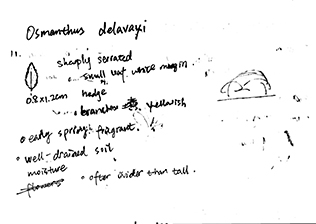 Osmanthus delavayi
sharply serrated
• small leaf white margin.
0.8x1.2cm hedge
• branches yellowish
• early spring fragrant
• well-drained soil
moisture
flowers
• often wider than tall.